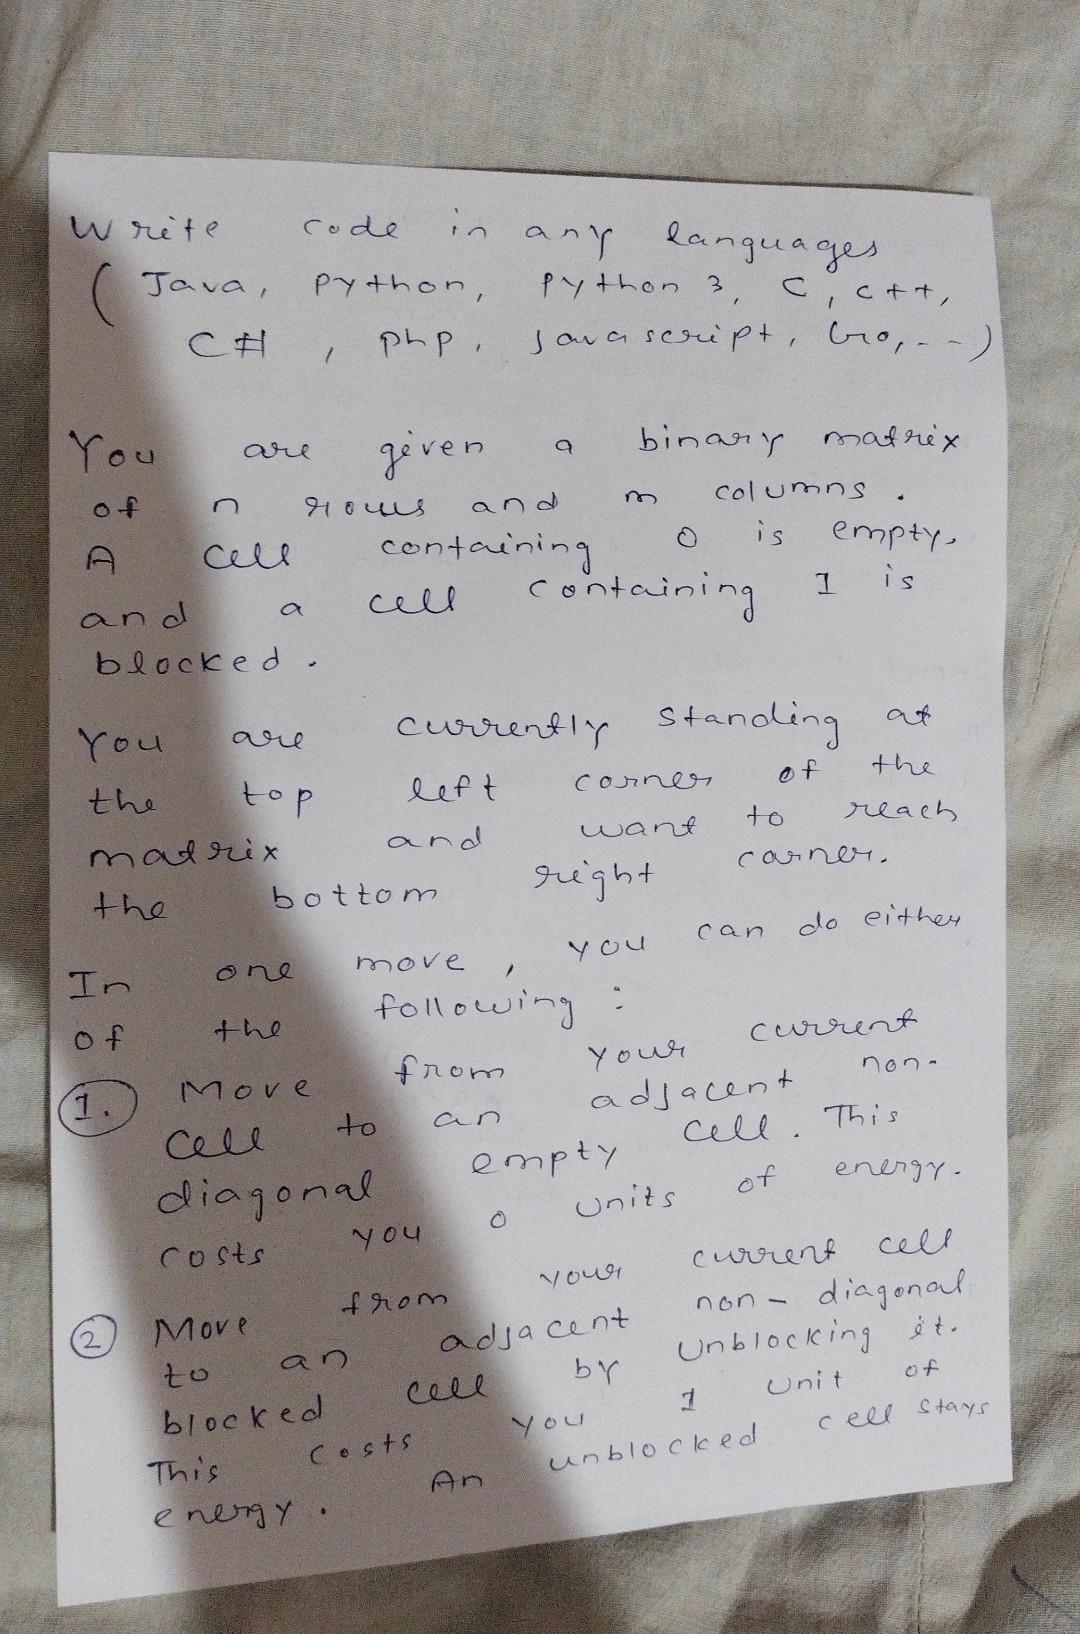 Write code in any languages
(Java, Python, Python 3, C, C++,
C#, PHP, Javascript, Go, --)
You are given a binary matrix
of n rows and m columns.
A cell containing 0 is empty,
and a cell containing 1 is
blocked.
You are currently standing at
the top left corner of the
matrix and want to reach
the bottom right corner.
In one move, you can do either
of the following:
1. Move from your current
cell to an adjacent non-
diagonal empty cell. This
costs you 0 units of energy.
2 Move from your current cell
to an adjacent non-diagonal
blocked cell by unblocking it.
This costs you 1 unit of
energy. An unblocked cell stays